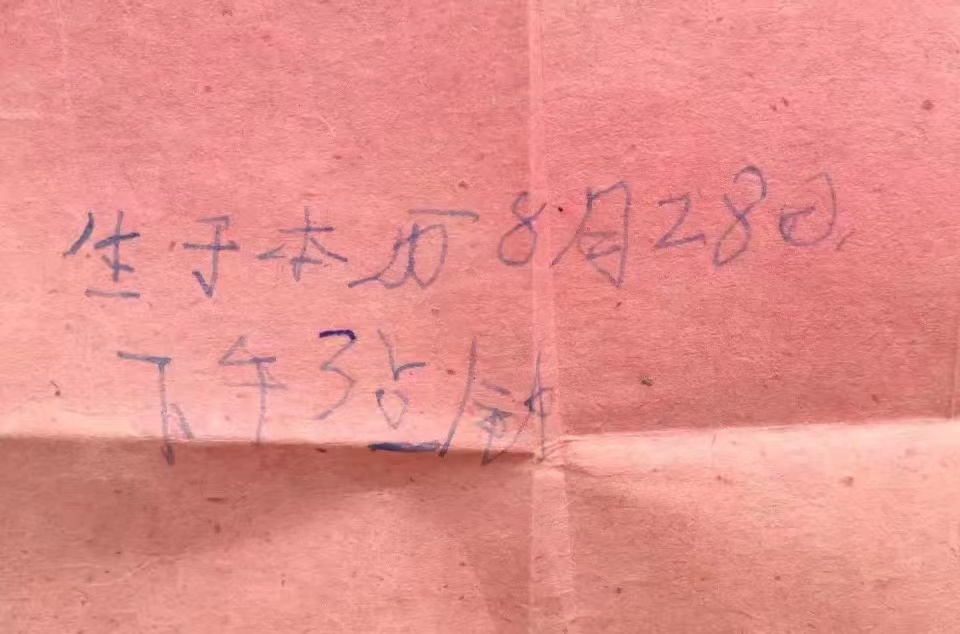 生于本历8月28日,
下午3点钟